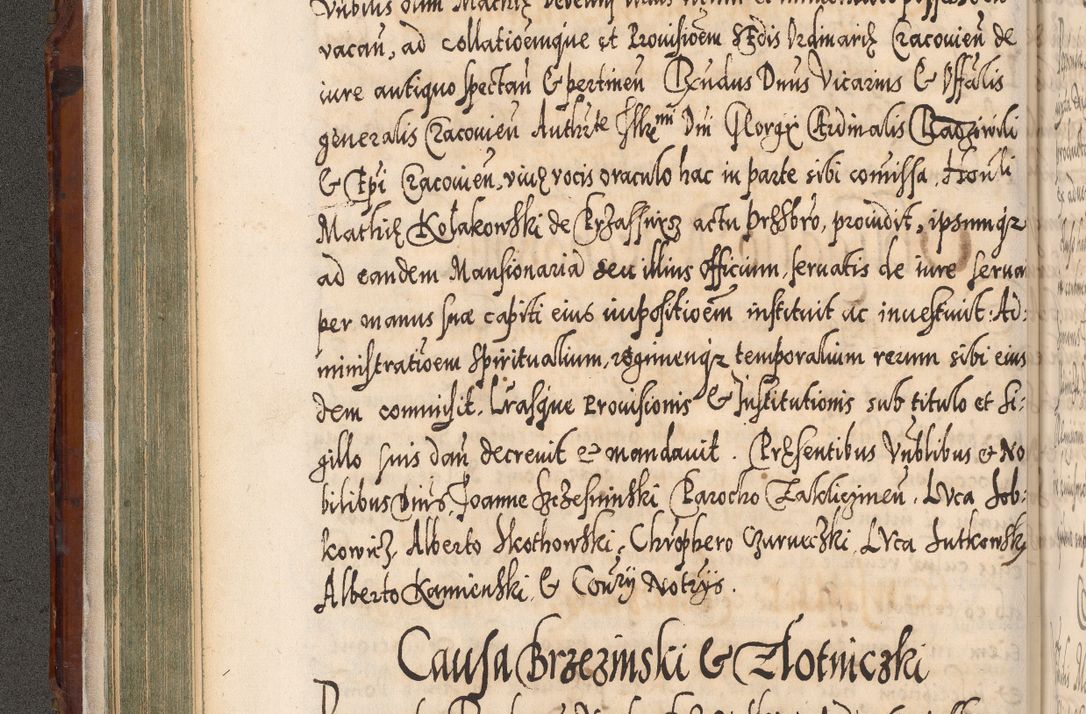 vacan̄, ad collatioēmque et Prouisioēm Sędis Ordinarię Cracouien̄ de
iure antiquo spectan̄ & pertinen̄ Rn̄dus Dn̄us Vicarius & Offālis
generalis Cracouien̄ Authr̄te Illr̄mi Dn̄i Georgÿ Cardinalis Radziwili
& Ep̄i Cracouien̄, viuę vocis oraculo hac in parte sibi com̄issa, Hon̄li
Mathię Kołakowski de actu pręsb̄ro, prouidit, ipsumq̢
ad eandem Mansionaria seu illius officium, seruatis de iure seruan
per manus suæ cap̄iti eius impositioēm instituit ac inuestiuit: Ad:
ministratioēm Spiritualium, regimenq̢ temporalium rerum sibi eius
dem commisit. Lr̄asque Prouisionis & Institutionis sub titulo et si:
gillo suis dan̄ decreuit et mandauit. Pręsentibus Vn̄blibus et No
bilibus Dn̄is, Joanne Szczesninski Parocho, Luca Sob:
kowicz, Alberto Skothowski, Chrōphero Czurueczki, Luca Sutkowsky
Alberto Kamienski, & Coūry Notr̄ÿs.
Causa Brzezinski & Zlotniczki